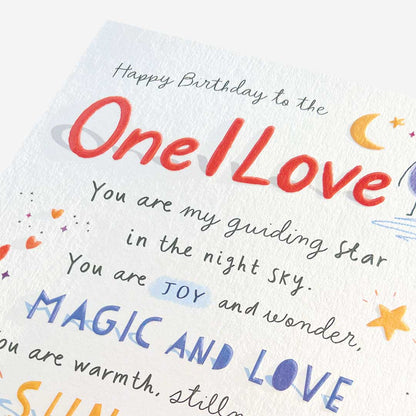 Happy Birthday to the
One I Love
You are my guiding star
in the night sky.
You are JOY and wonder,
MAGIC AND LOVE
you are warmth,
SUN